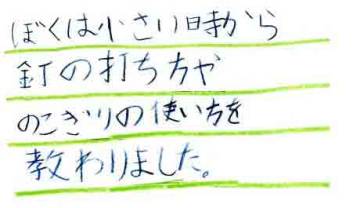 ぼくは小さい時から
釘の打ち方や
のこぎりの使い方を
教わりました。